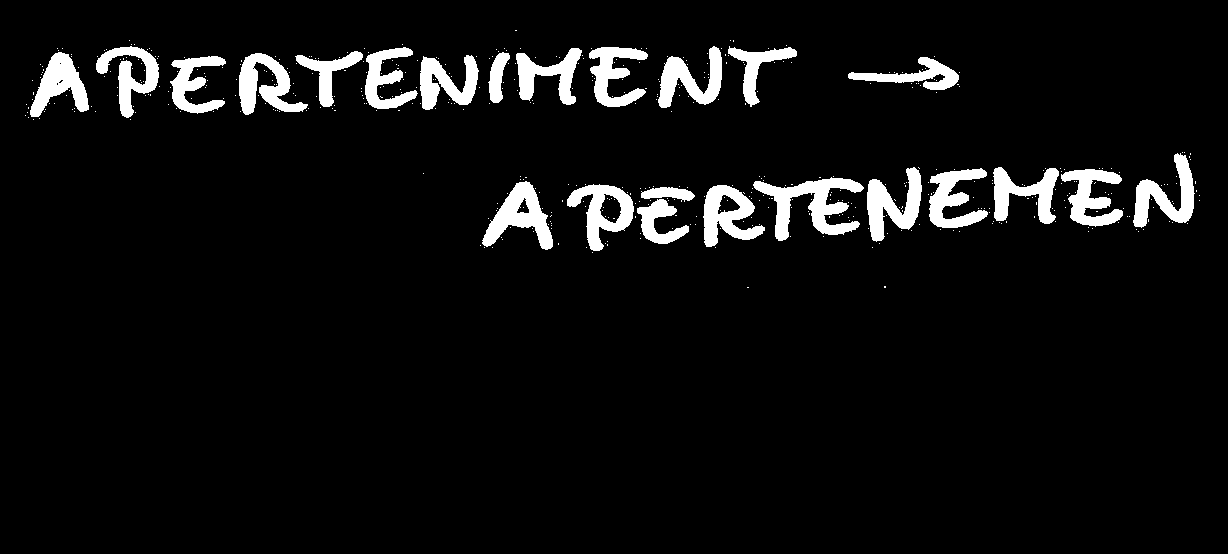 APERTENIMENT →
APERTENEMEN